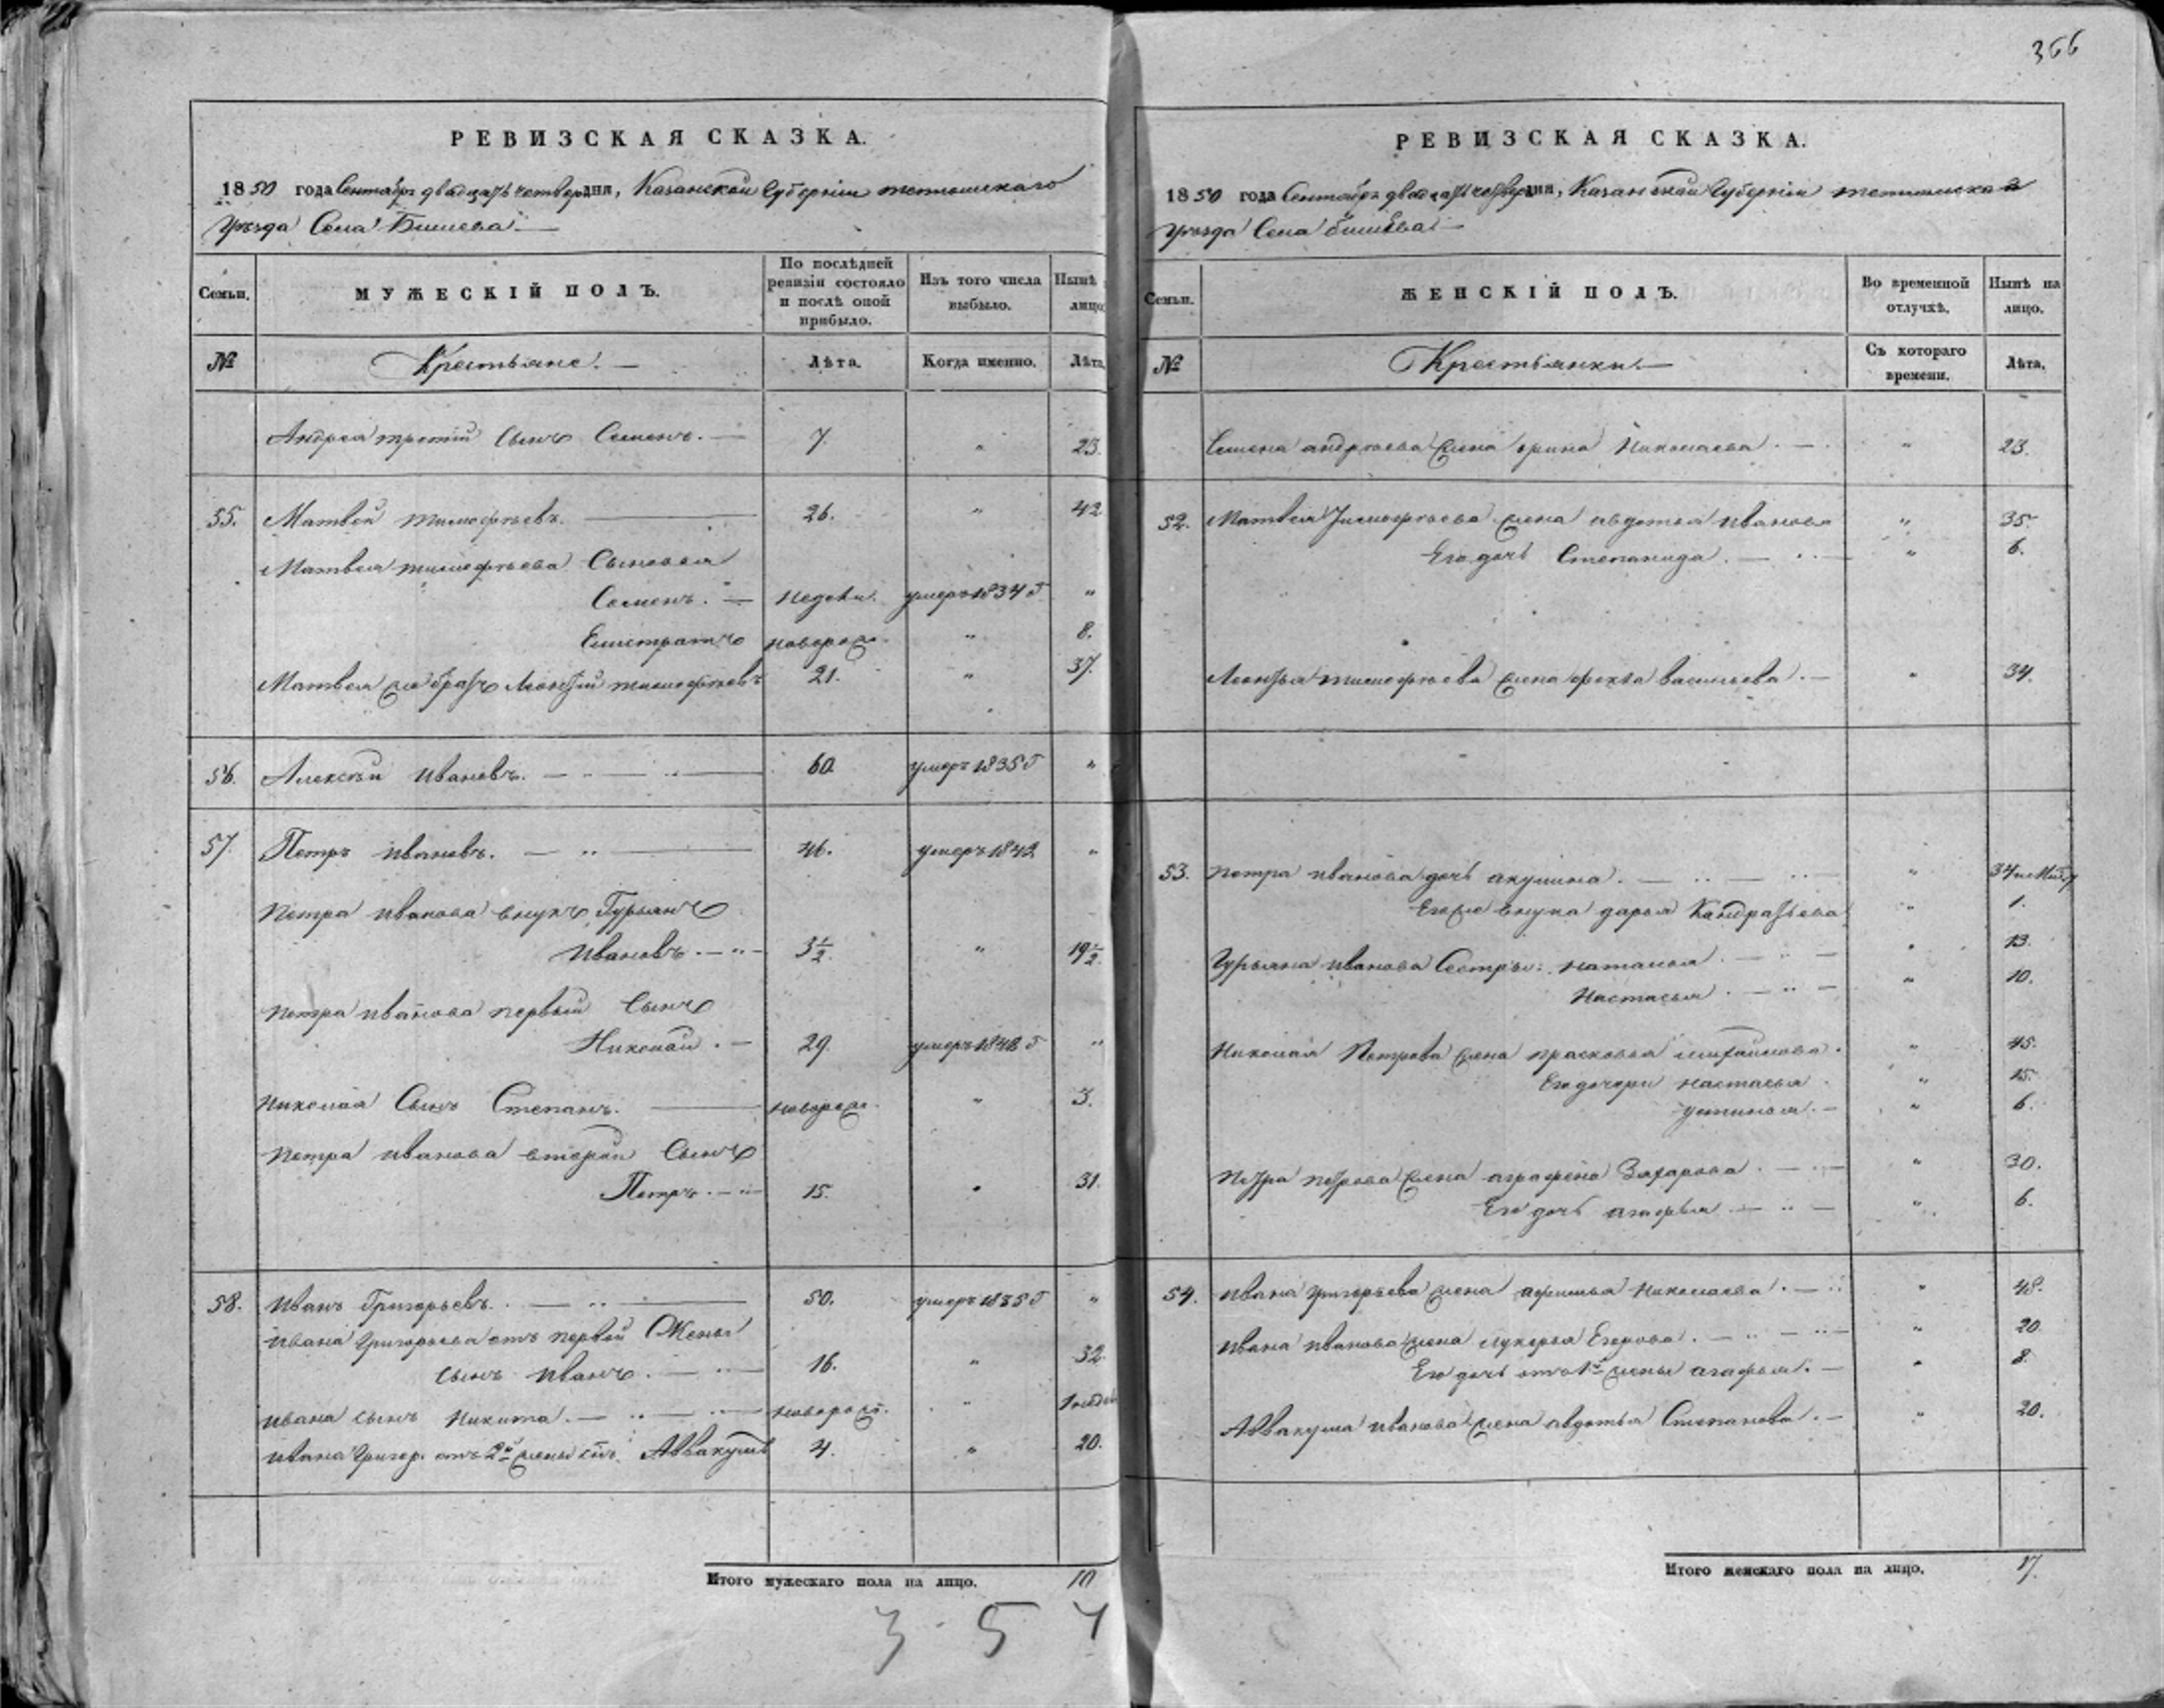 366
РЕВИЗСКАЯ СКАЗКА.
1850 года Сентября двадцать четвер дня, Казанской Губернии тетюшскаго
уѣзда Села Бишева
Семьи.
МУЖЕСКІЙ ПОЛЪ.
По послѣдней ревизіи состояло и послѣ оной прибыло.
Изъ того числа выбыло.
Нынѣ лицо
№
Крестьяне.
Лѣта.
Когда именно.
Лѣта
Андрея третий сынъ Семенъ. 7. " 23.
55. Матвей тимофѣевъ. 26. " 42
Матвея тимофѣева Сыновья
Семенъ. недели. умеръ 1834 г "
Елистратъ новорож. " 8.
Матвея же братъ Леонтий тимофѣевъ 21. " 37.
56. Алексѣй Ивановъ. 60 умеръ 1835 г "
57. Петръ ивановъ. 46. умеръ 1842 "
Петра иванова внукъ Гурьянъ
Ивановъ. 3 1/2. " 19 1/2.
Петра иванова первый Сынъ
Николай. 29. умеръ 1848 г "
Николая Сынъ Степанъ. новорож. " 3.
Петра иванова второй Сынъ
Петръ. 15. " 31.
58. Иванъ Григорьевъ. 50. умеръ 1835 г "
Ивана Григорьева отъ первой Жены
сынъ иванъ. 16. " 32.
ивана сынъ Никита. новорож. " 1 недел
ивана Григор. отъ 2й жены сынъ Аввакумъ 4. " 20.
Итого мужескаго пола на лицо. 10
3 5 7
РЕВИЗСКАЯ СКАЗКА.
1850 года Сентября двадцать четвер дня, Казанской Губернии тетюшска
уѣзда Села бишева
Семьи.
ЖЕНСКІЙ ПОЛЪ.
Во временной отлучкѣ,
Нынѣ на лицо.
№
Крестьянки.
Съ котораго времени.
Лѣта.
Семена андрѣева жена ирина Николаева. " 23.
52. Матвея Тимофѣева жена авдотья иванова " 35.
Его дочь Степанида. " 6.
Леонтья тимофѣева жена фекла васильева. " 34.
53. Петра иванова дочь акулина. " 34
Его же внука дарья Кандратьева " 1.
Гурьяна иванова Сестры: наталья. " 13.
Настасья. " 10.
Николая Петрова жена прасковья михайлова. " 45.
Его дочери настасья. " 15.
устинья. " 6.
Петра петрова жена аграфена Захарова. " 30.
Его дочь агафья " 6.
54. ивана григорьева жена Николаева. " 48.
ивана иванова жена лукерья Егорова. " 20
Его дочь отъ 1й жены агафья. " 8.
Аввакума иванова жена авдотья Степанова. " 20.
Итого женскаго пола на лицо. 17.